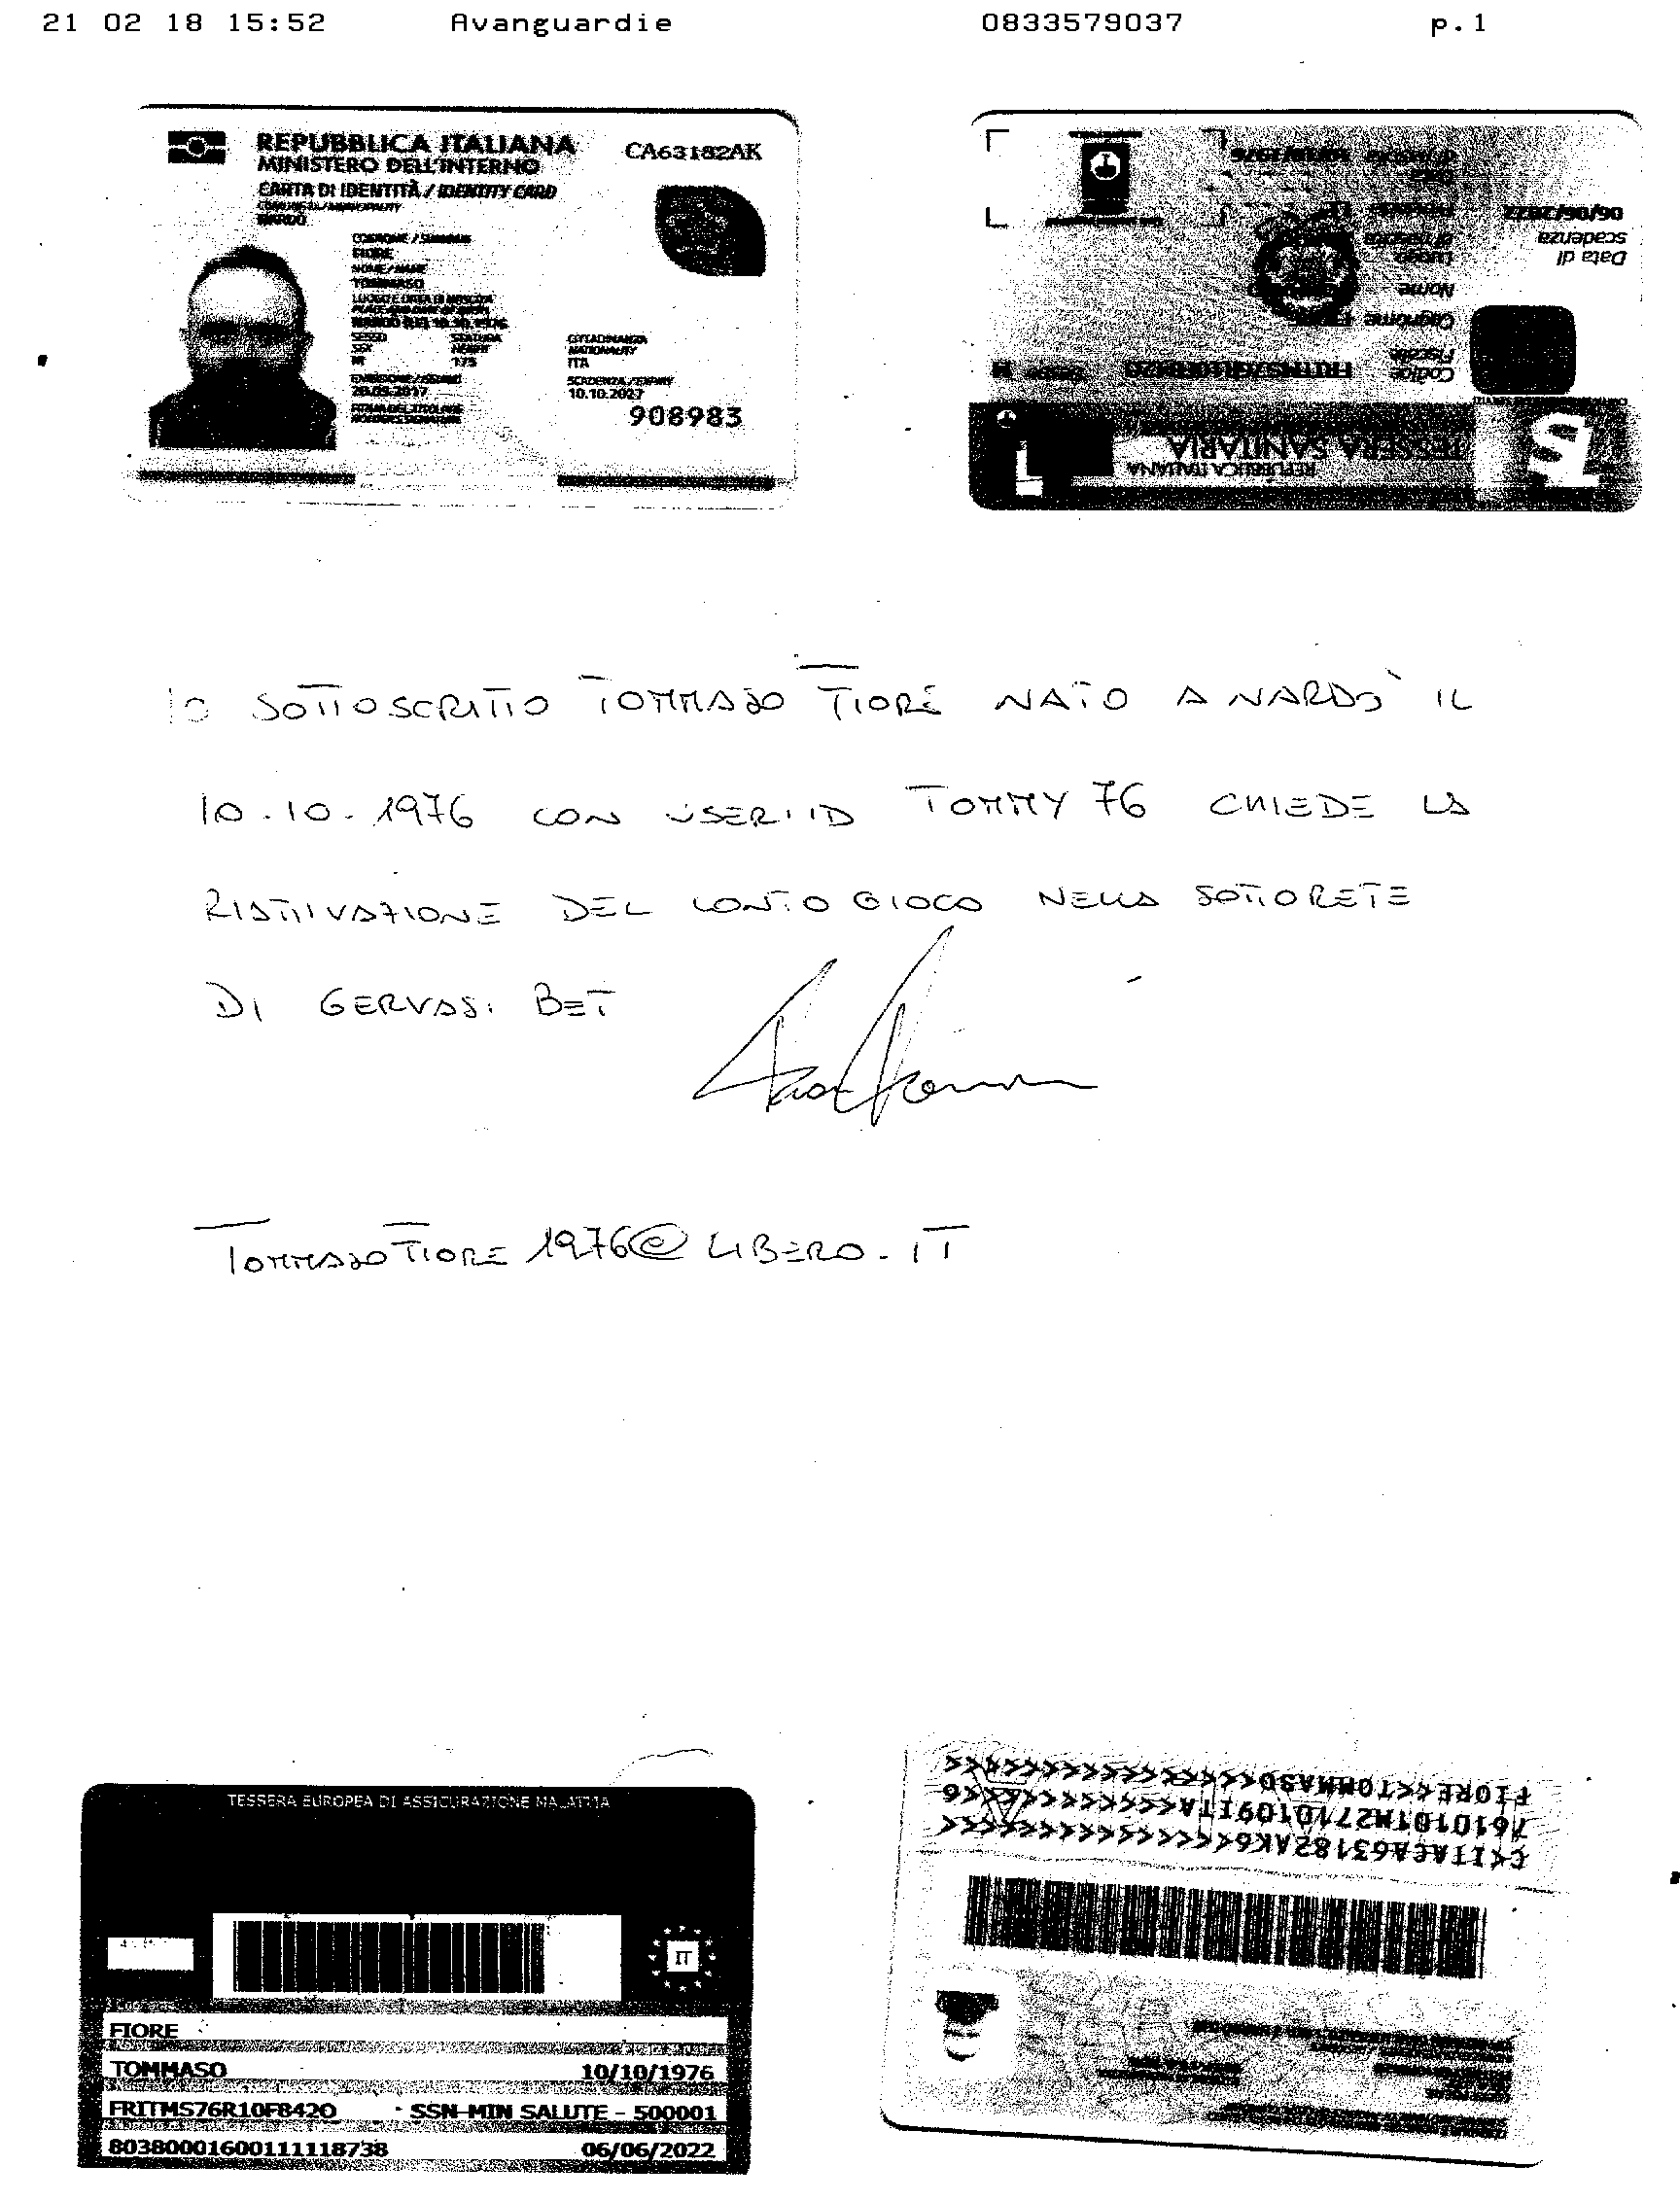 21 02 18 15:52 Avanguardie 0833579037 p.1
REPUBBLICA ITALIANA
CA63182AK
MINISTERO DELL'INTERNO
CARTA DI IDENTITÀ / IDENTITY CARD
COMUNE DI / MUNICIPALITY
NARDÒ
COGNOME / SURNAME
FIORE
NOME / NAME
TOMMASO
LUOGO E DATA DI NASCITA
PLACE AND DATE OF BIRTH
NARDÒ (LE) 10.10.1976
SESSO STATURA CITTADINANZA
SEX HEIGHT NATIONALITY
M 175 ITA
EMISSIONE / ISSUING SCADENZA / EXPIRY
10.10.2027
FIRMA DEL TITOLARE
HOLDER'S SIGNATURE
908983
TESSERA SANITARIA
REPUBBLICA ITALIANA
Codice Fiscale FRITMS76R10F842O Sesso M
Cognome
Nome
Luogo di nascita
Provincia
Data di nascita 10/10/1976
Data di scadenza
06/06/2022
IO SOTTOSCRITTO TOMMASO FIORE NATO A NARDÒ IL
10.10.1976 CON USER ID TOMMY 76 CHIEDE LA
RIATTIVAZIONE DEL CONTO GIOCO NELLA SOTTORETE
DI GERVASI BET
TOMMASOFIORE1976@LIBERO.IT
TESSERA EUROPEA DI ASSICURAZIONE MALATTIA
IT
FIORE
TOMMASO 10/10/1976
FRITMS76R10F842O SSN-MIN SALUTE - 500001
80380001600111118738 06/06/2022
C<ITACA63182AK6<<<<<<<<<<<<<<<
7610101M2710109ITA<<<<<<<<<<<6
FIORE<<TOMMASO<<<<<<<<<<<<<<<<